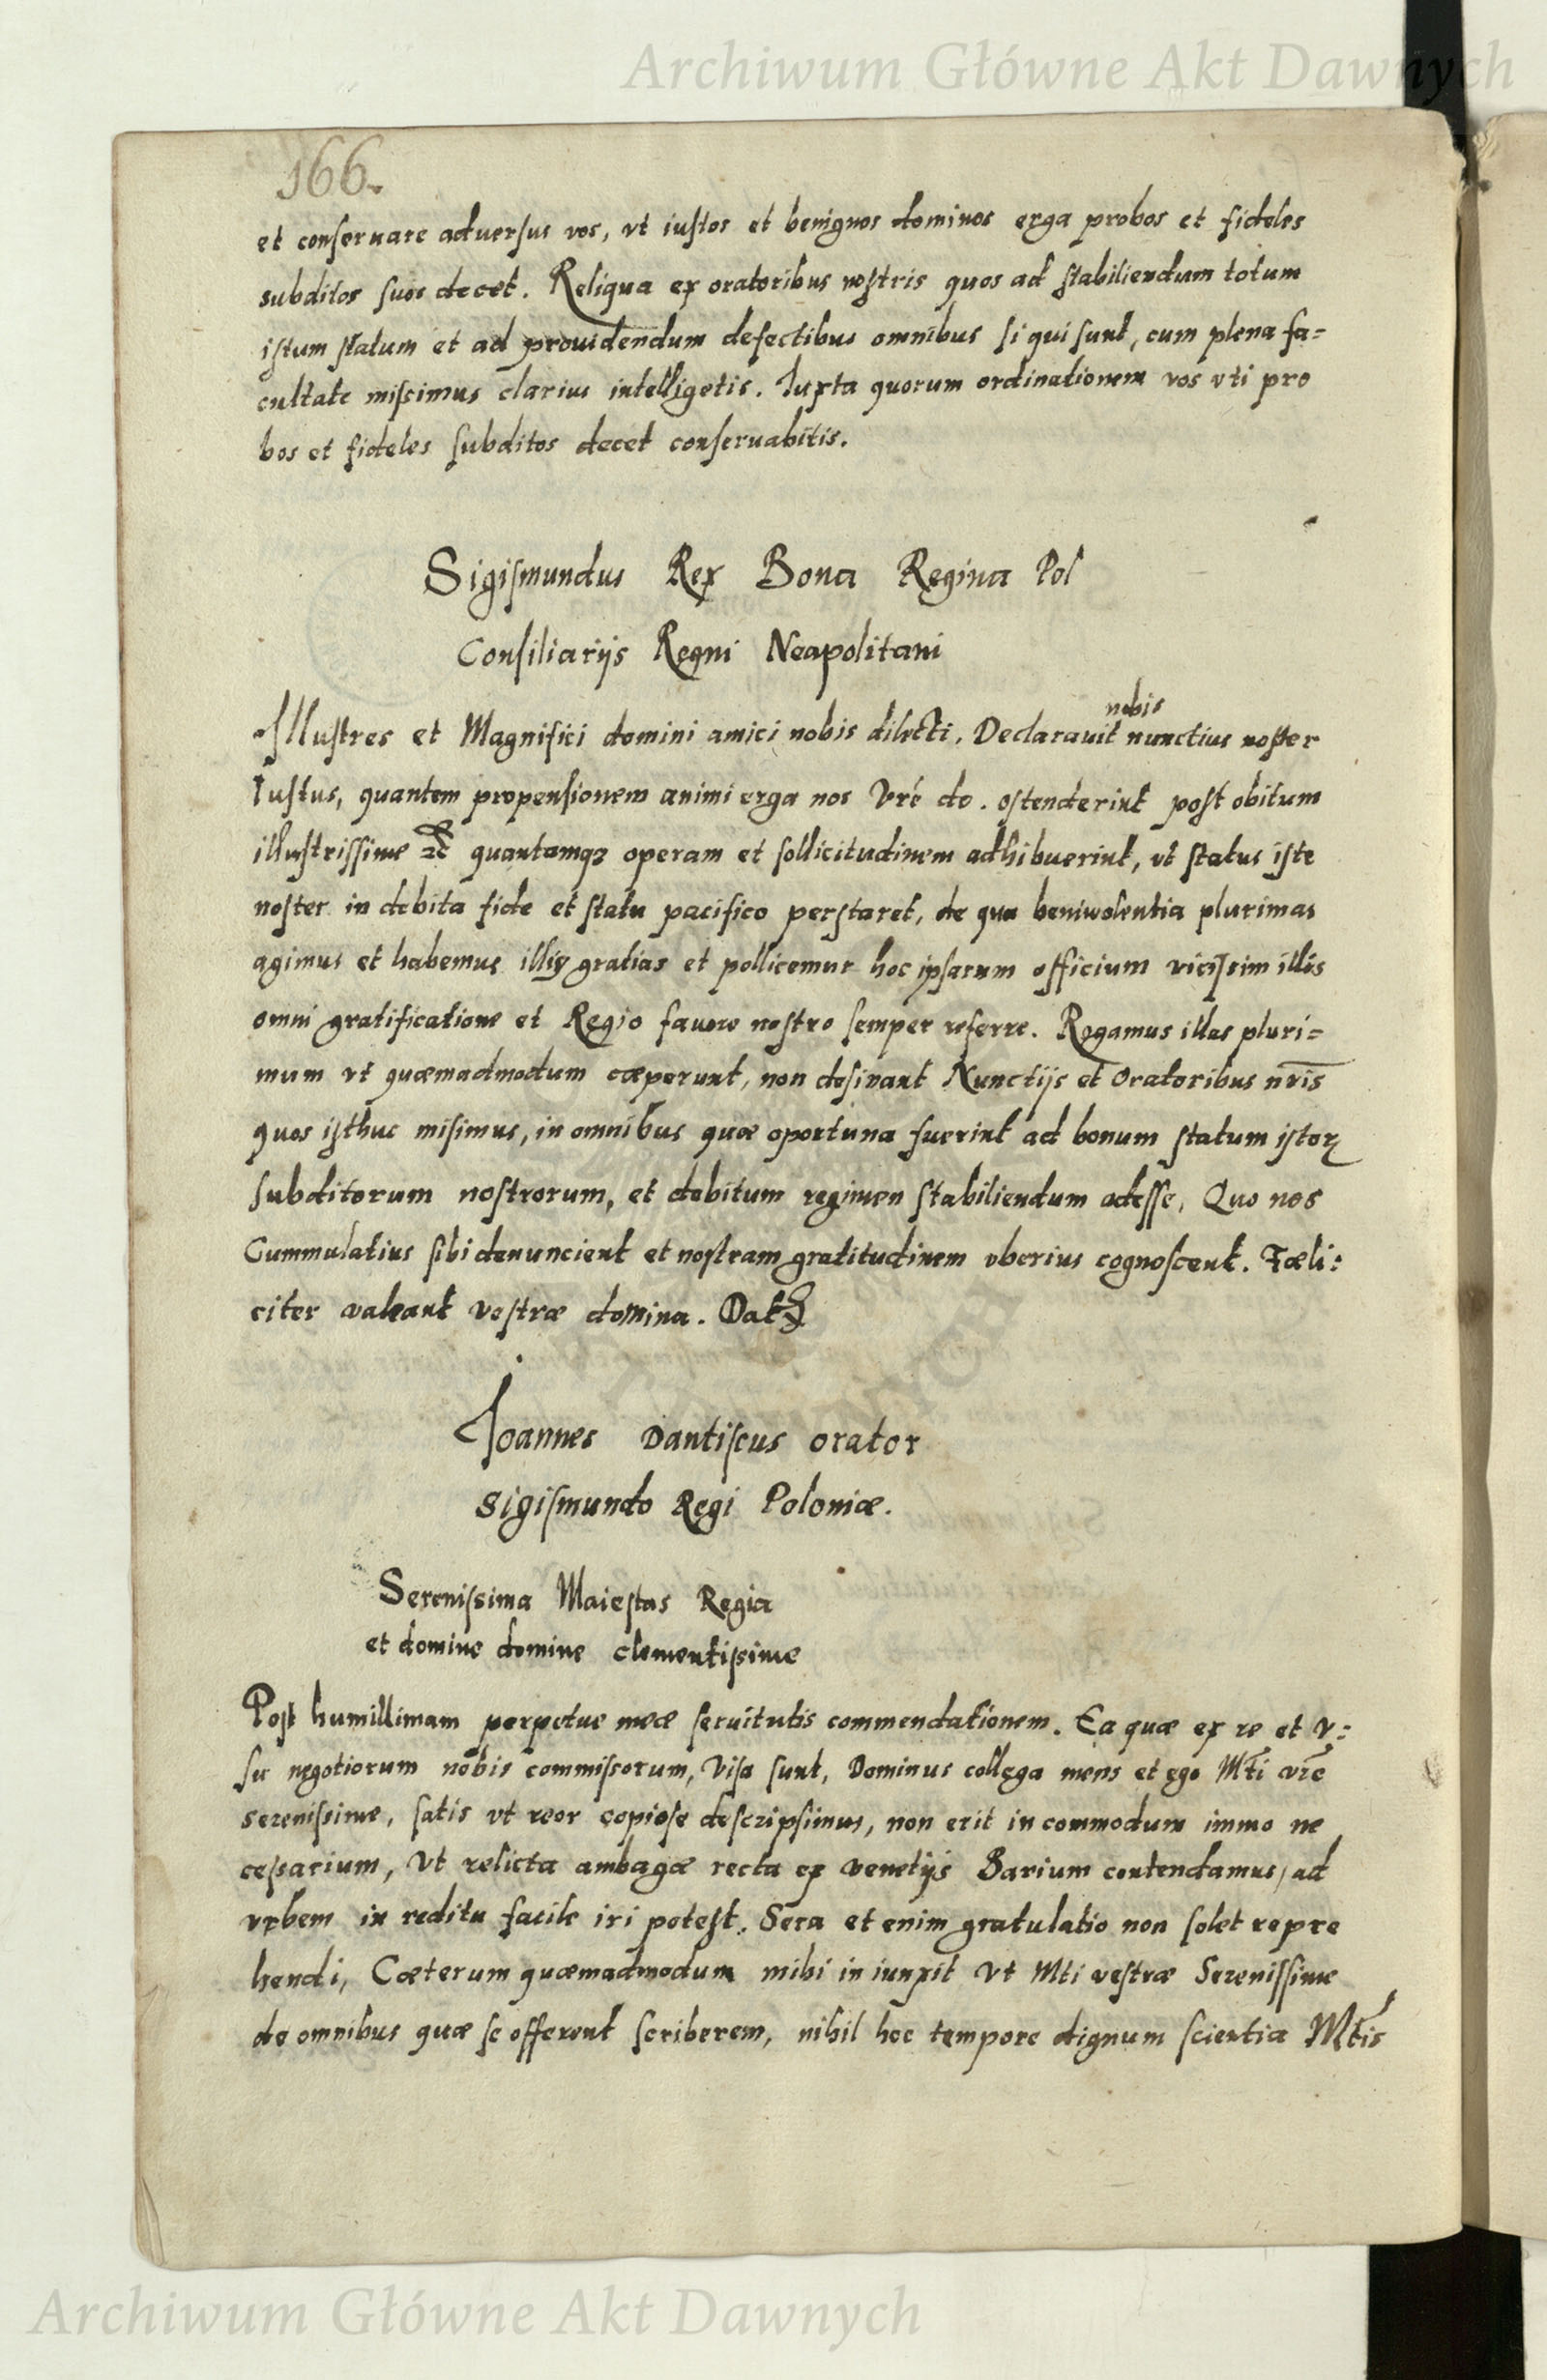 Archiwum Główne Akt Dawnych
166.
et conseruare aduersus vos, vt iustos et benignos dominos erga probos et fideles
subditos suos decet. Reliqua ex oratoribus nostris quos ad stabiliendum totum
istum statum et ad prouidendum defectibus omnibus si qui sunt, cum plena fa=
cultate missimus clarius intelligetis. Iuxta quorum ordinationem vos vti pro
bos et fideles subditos decet conseruabitis.
Sigismundus Rex Bona Regina Pol
Consiliarijs Regni Neapolitani
nobis
Illustres et Magnifici domini amici nobis dilecti. Declarauit nunctius noster
Iustus, quantam propensionem animi erga nos Vrē do. ostenderint post obitum
illustrissime etc quantamq3 operam et sollicitudinem adhibuerint, vt status iste
noster in debita fide et statu pacifico perstaret, de qua beniuolentia plurimas
agimus et habemus illis gratias et pollicemur hoc ipsarum officium vicissim illis
omni gratificatione et Regio fauore nostro semper referre. Rogamus illas pluri=
mum vt quæmadmodum cæperunt, non desinant Nunctijs et Oratoribus nrīs
quos isthuc misimus, in omnibus quæ oportuna fuerint ad bonum statum istoꝝ
subditorum nostrorum, et debitum regimen stabiliendum adesse, Quo nos
Cummulatius sibi denuncient et nostram gratitudinem vberius cognoscent. Fæli:
citer valeant vestræ domina. Dat
Ioannes Dantiscus orator
Sigismundo Regi Poloniæ.
Serenissima Maiestas Regia
et domine domine clementissime
Post humillimam perpetue meæ seruitutis commendationem. Ea quæ ex re et v:
su negotiorum nobis commissorum, Visa sunt, Dominus collega meus et ego Mti vrē
serenissime, satis vt reor copiose descripsimus, non erit in commodum immo ne
cessarium, Vt relicta ambagæ recta ex venetijs Barium contendamus, ad
vrbem in reditu facile iri potest. Sera et enim gratulatio non solet repre
hendi, Cæterum quæmadmodum mihi in iunxit Vt Mti vestræ Serenissime
de omnibus quæ se offerent scriberem, nihil hoc tempore dignum scientia Mtis
Archiwum Główne Akt Dawnych